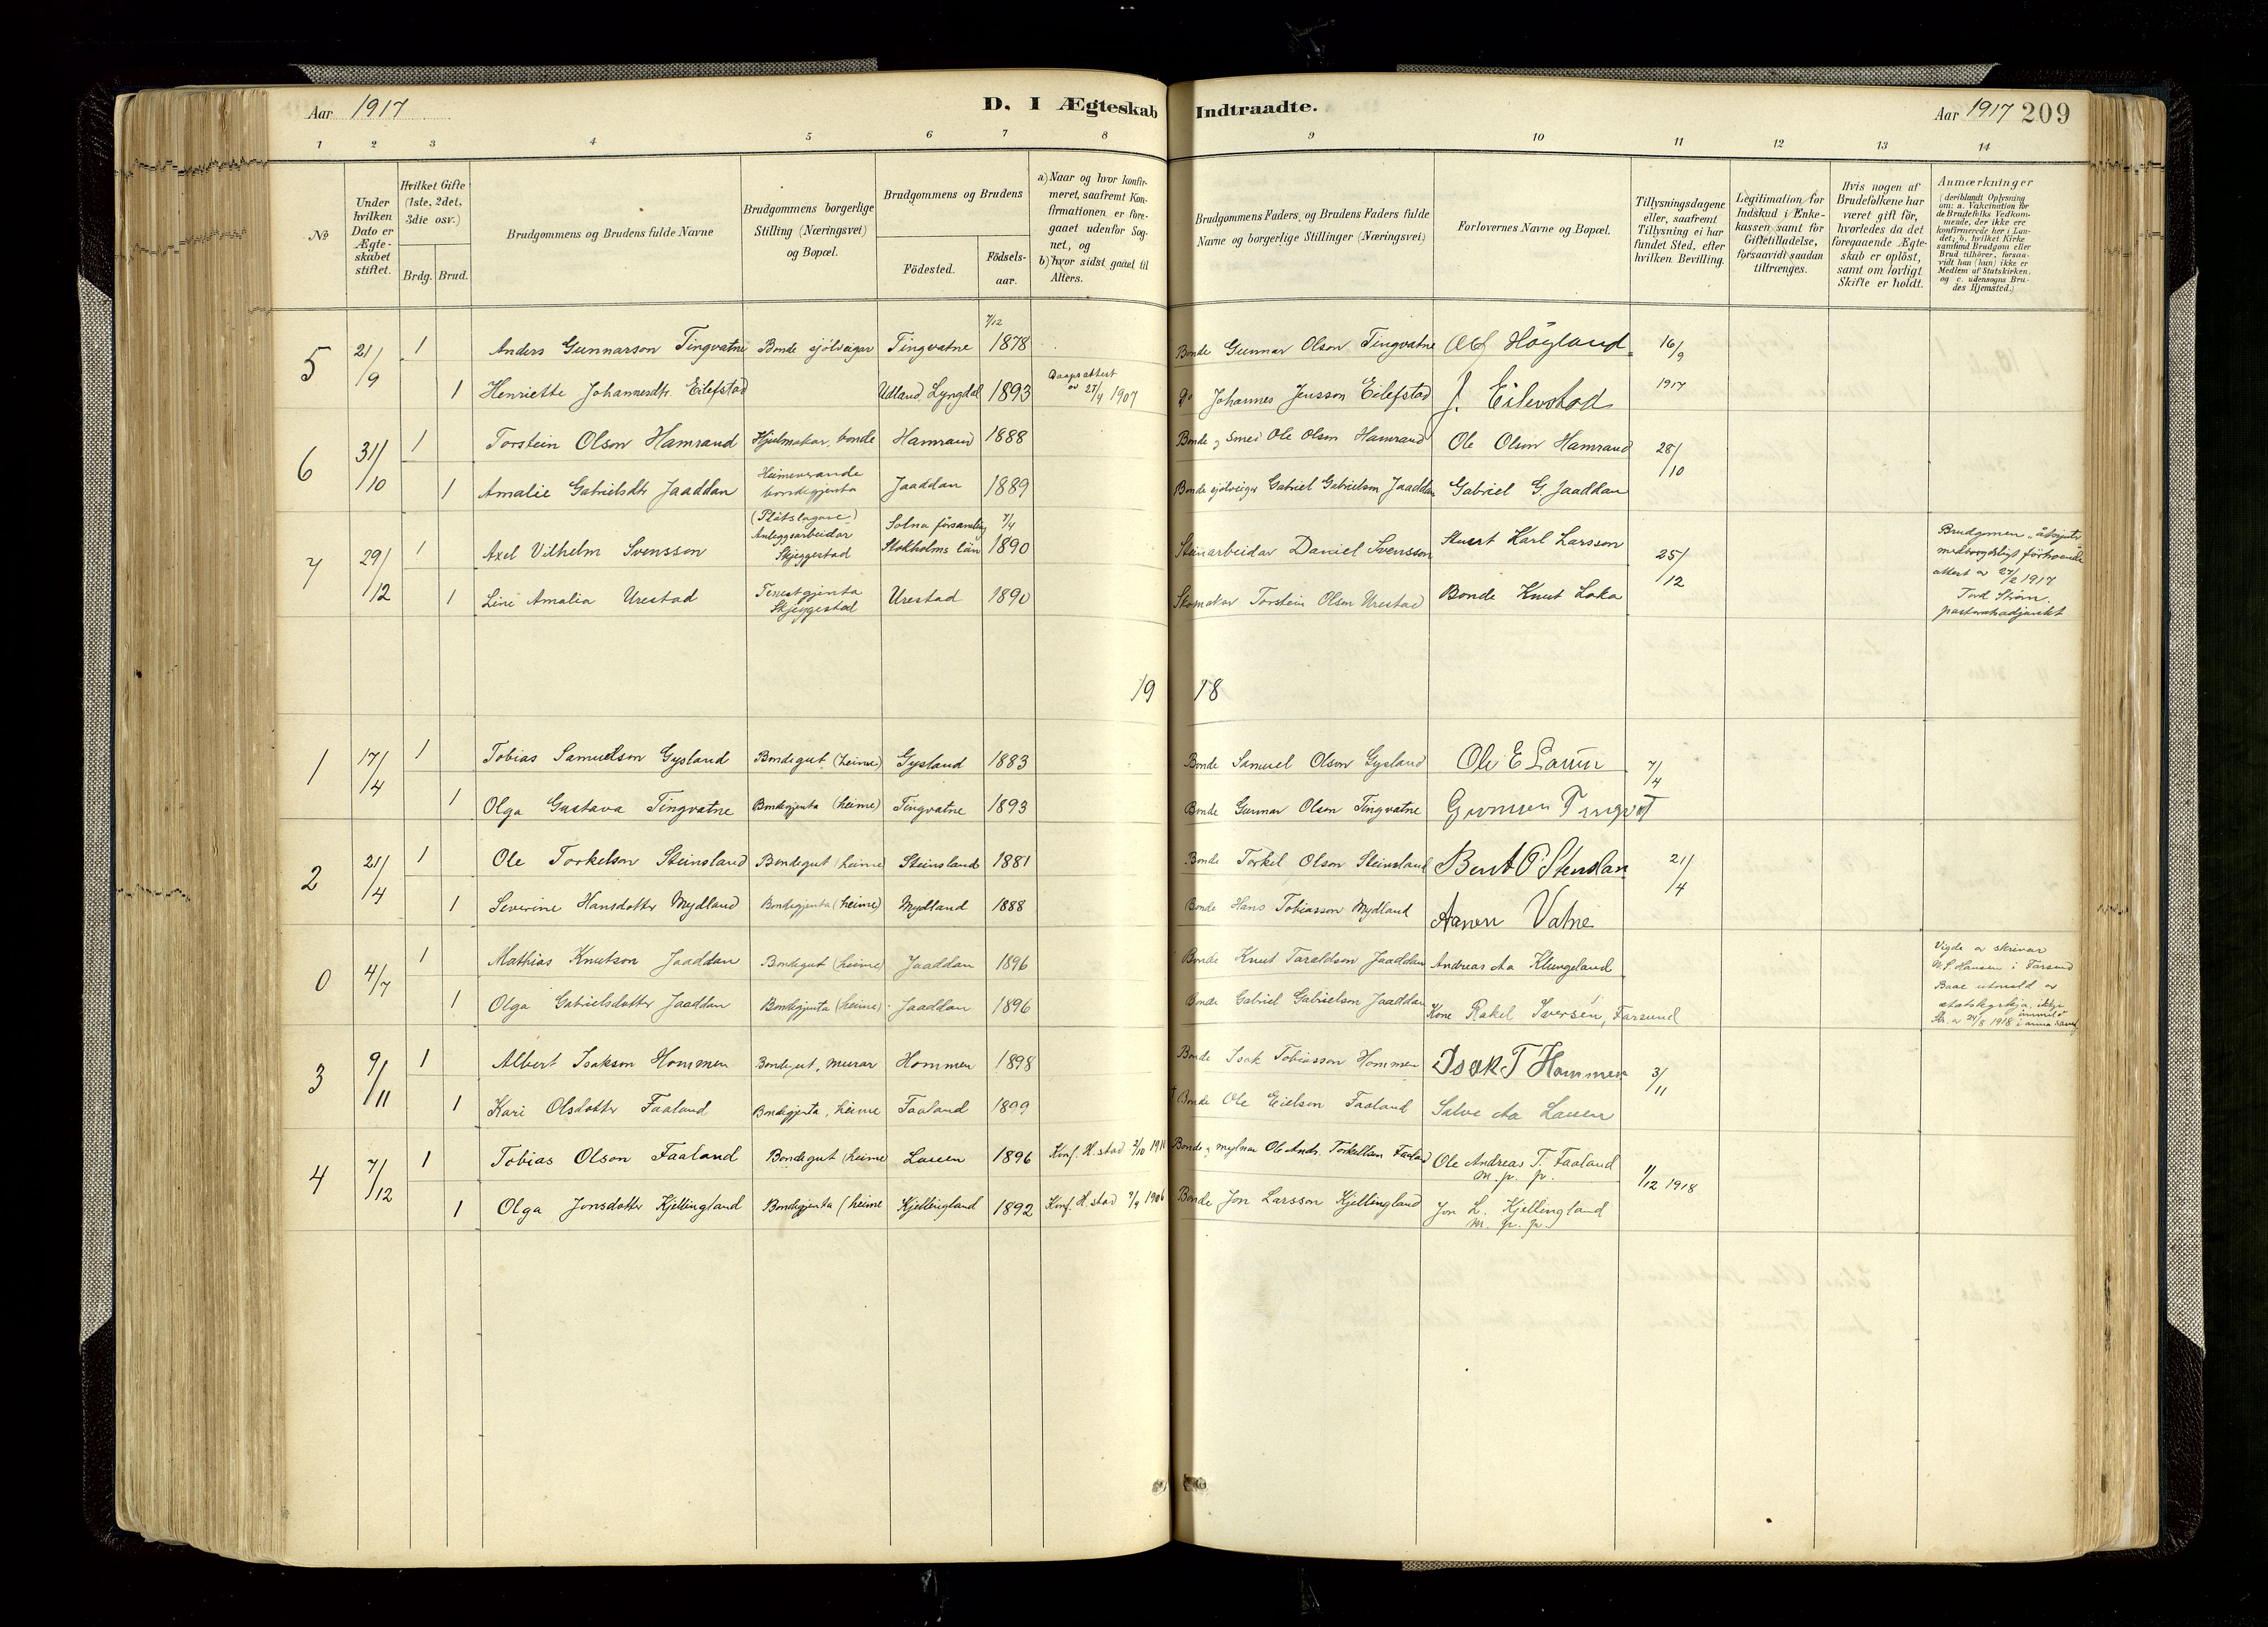 Aar 1917
D. I Ægteskab Indtraadte.
Aar 1917 209
1 2 3 4 5 6 7 8 9 10 11 12 13 14
No
Under hvilken Dato er Ægteskabet stiftet.
Hvilket Gifte (1ste, 2det, 3die osv.)
Brdg. Brud.
Brudgommens og Brudens fulde Navne
Brudgommens borgerlige Stilling (Næringsvei) og Bopæl.
Brudgommens og Brudens
Födested.
Födselsaar.
a) Naar og hvor konfirmeret, saafremt Konfirmationen er foregaaet udenfor Sognet, og
b) hvor sidst gaaet til Alters.
Brudgommens Faders og Brudens Faders fulde Navne og borgerlige Stillinger (Næringsvei)
Forlovernes Navne og Bopæl.
Tillysningsdagene eller, saafremt Tillysning ei har fundet Sted, efter hvilken Bevilling.
Legitimation for Indskud i Enkekassen samt for Giftetilladelse, forsaavidt saadan tiltrænges.
Hvis nogen af Brudefolkene har været gift för, hvorledes da det foregaaende Ægteskab er oplöst, samt om lovligt Skifte er holdt.
Anmærkninger (deriblandt Oplysning om: a. Vakcination for de Brudefolks Vedkommende, der ikke ere konfirmerede her i Landet; b. hvilket Kirkesamfund Brudgom eller Brud tilhörer, forsaavidt han (hun) ikke er Medlem af Statskirken, og c. udensogns Brudes Hjemsted.)
5 21/9 1 Anders Gunnarson Tingvatne Bonde sjölveigar Tingvatne 7/12 1878 Bonde Gunnar Olson Tingvatne Olaf Höyland 16/9
1 Henriette Johannesdtr. Eilefstad Udland, Lyngdal 1893 Daapsattest av 27/4 1907 Do Johannes Jensson Eilefstad J. Eilevstad 1917
6 31/10 1 Torstein Olson Hamrand Hjulmakar, bonde Hamrand 1888 Bonde og Smed Ole Olson Hamrand Ole Olson Hamrand 28/10
1 Amalie Gabrielsdtr Jaaddan Heimeverande bondegjenta Jaaddan 1889 Bonde sjölveigar Gabriel Gabrielson Jaaddan Gabriel G. Jaaddan
7 29/12 1 Axel Vilhelm Svensson (Plåtslagare) Anleggsarbeidar Skjeggestad Solna församling Stokholms län 7/4 1890 Steinarbeidar Daniel Svensson Karl Larsson 25/12
Brudgomen
attest av 27/2 1917
Tord Ström.
pastoratsadjunkt
1 Line Amalia Urestad Tenestgjenta Skjeggestad Urestad 1890 Skomakar Torstein Olson Urestad Bonde Knut Loka
1918
1 17/4 1 Tobias Samuelson Gysland Bondegut (heime) Gysland 1883 Bonde Samuel Olson Gysland Ole E Lauen 7/4
1 Olga Gustava Tingvatne Bondegjenta (heime) Tingvatne 1893 Bonde Gunnar Olson Tingvatne Gunnar Tingvat
2 21/4 1 Ole Torkelson Steinsland Bondegut (heime) Steinsland 1881 Bonde Torkel Olson Steinsland Bent O Stensland 21/4
1 Severine Hansdotter Mydland Bondegjenta (heime) Mydland 1888 Bonde Hans Tobiasson Mydland Aanen Vatne
0 4/7 1 Mathias Knutson Jaaddan Bondegut (heime) Jaaddan 1896 Bonde Knut Taraldson Jaaddan Andreas Aa Klungeland
Vigde av skrivar
N. S. Hansen i Farsund
Baae utmeld av
statskyrkja
1 Olga Gabrielsdotter Jaaddan Bondegjenta (heime) Jaaddan 1896 Bonde Gabriel Gabrielson Jaaddan Kone Rakel Iversen, Farsund
3 9/11 1 Albert Isakson Hommen Bondegut, murar Hommen 1898 Bonde Isak Tobiasson Hommen Isak T Hommen 3/11
1 Kari Olsdotter Faaland Bondegjenta, heime Faaland 1899 † Bonde Ole Eielson Faaland Salve Aa Lauen
4 7/12 1 Tobias Olson Faaland Bondegut (heime Lauen 1896 Konf. H.stad 2/10 1911 Bonde og mylnar Ole Andr. Torkellsen Faaland Ole Andreas T. Faaland m. p. p. 1/12 1918
1 Olga Jonsdotter Kjellingland Bondegjenta (heime Kjellingland 1892 Konf. H.stad 1906 Bonde Jon Larsson Kjellingland Jon L. Kjellingland m. p. p.